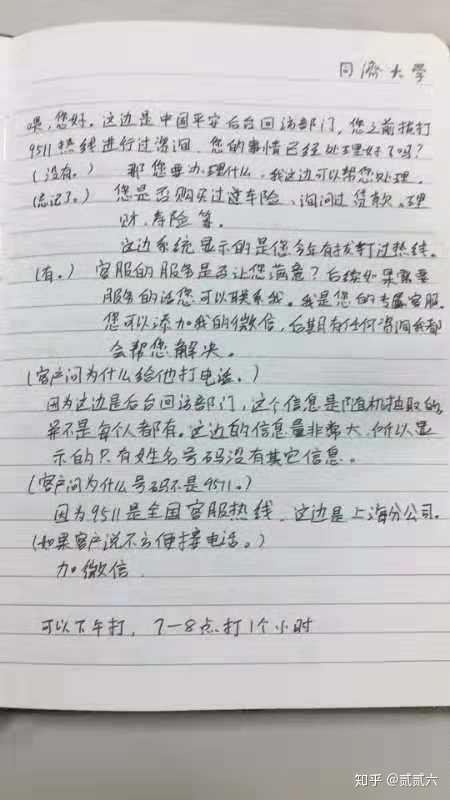 同济大学
喂,您好。这边是中国平安后台回访部门,您之前拨打
9511热线进行过咨询,您的事情已经处理好了吗?
(没有。) 那您要办理什么,我这边可以帮您处理。
(忘记了。) 您是否购买过这车险、询问过贷款、理
财、寿险等。
这边系统显示的是您今年有拨打过热线。
(有。) 客服的服务是否让您满意?后续如果需要
服务的话您可以联系我。我是您的专属客服。
您可以添加我的微信,后期有任何咨询我都
会帮您解决。
(客户问为什么给他打电话。)
因为这边是后台回访部门,这个信息是随机抽取的,
并不是每个人都有。这边的信息量非常大,所以显
示的只有姓名号码没有其它信息。
(客户问为什么号码不是9511。)
因为9511是全国客服热线,这边是上海分公司。
(如果客户说不方便接电话。)
加微信.
可以下午打,7-8点打1个小时
知乎 @贰贰六